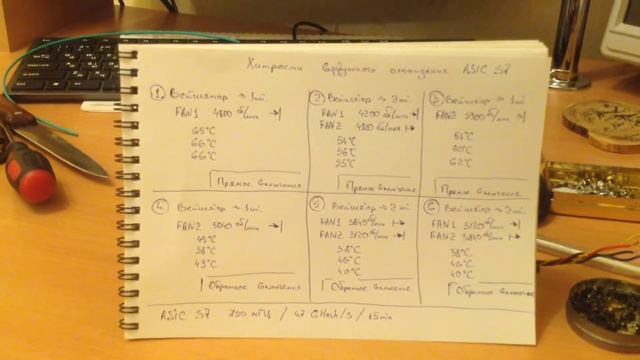 Хитрости воздушного охлаждения ASIC S7
1. Вентилятор → 1шт.
FAN1 4800 об/мин →|
65°C
66°C
66°C
Прямое включение
2 Вентилятор → 2шт.
FAN1 4200 об/мин →|
FAN2 4180 об/мин |→
54°C
56°C
55°C
Прямое включение
3 Вентилятор → 1шт.
FAN2 5300 об/мин →|
54°C
60°C
62°C
Прямое включение
4. Вентилятор → 1шт.
FAN2 5040 об/мин →|
45°C
58°C
43°C
Обратное включение
5 Вентилятор → 2шт.
FAN1 3840 об/мин |→
FAN2 3120 об/мин →|
38°C
46°C
40°C
Обратное включение
6 Вентилятор → 2шт.
FAN1 3120 об/мин →|
FAN2 3840 об/мин |→
38°C
46°C
40°C
Обратное включение
ASIC S7 700 МГЦ / 4.7 GHash/s / 15min